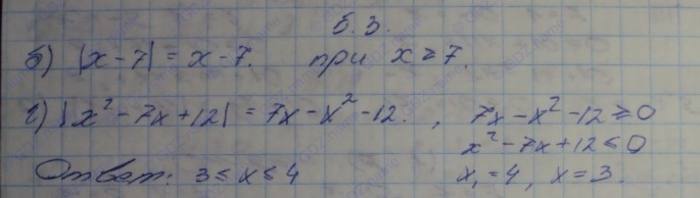 5.3.
б) |x-7| = x-7. при x ≥ 7.
г) |x²-7x+12| = 7x-x²-12. , 7x-x²-12 ≥ 0
x²-7x+12 ≤ 0
Ответ: 3 ≤ x ≤ 4 x₁=4, x=3.